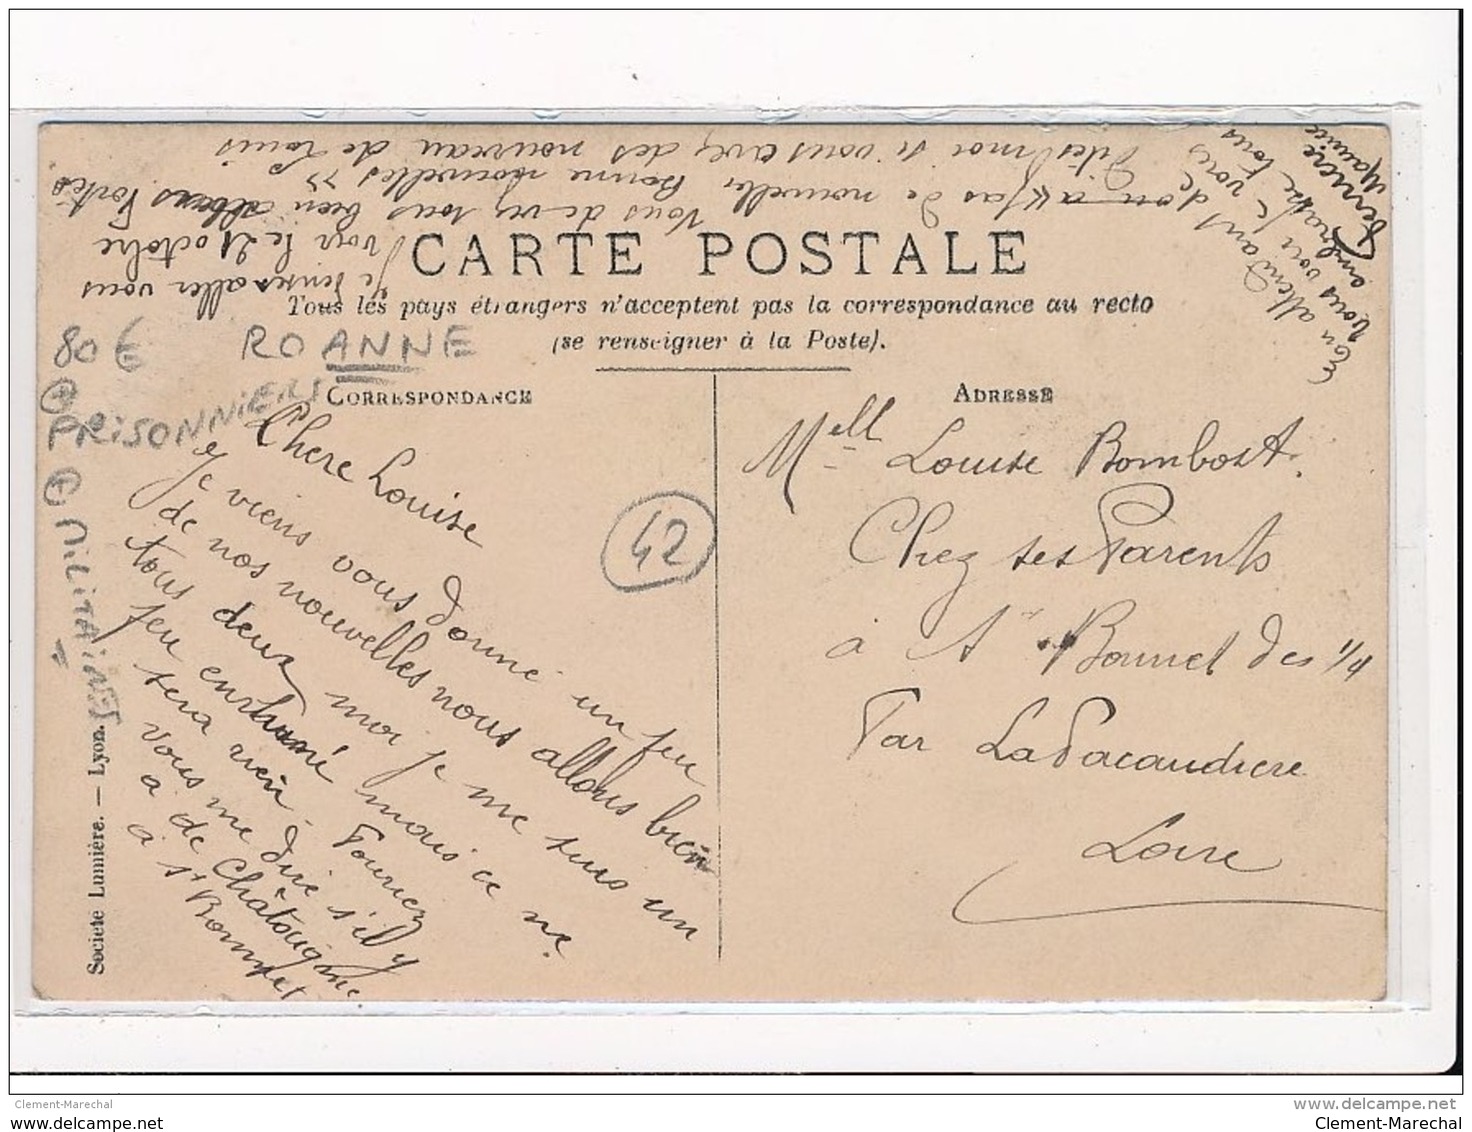 CARTE POSTALE
Tous les pays étrangers n'acceptent pas la correspondance au recto
(se renseigner à la Poste).
CORRESPONDANCE
ADRESSE
80 €
ROANNE
+
PRISONNIERS
+ MILITAIRES
42
Chere Louise
Je viens vous donné un peu
de nos nouvelles nous allons bien
tous deux moi je me suis un
peu enrhumé mais ce ne
sera rien. Pourriez
vous me dire s'il y
a de Châtaigne
à St Bonnet
Je penses aller vous
voir le 21 octobre
Vous devez tous bien
pas de nouvelles Bonne nouvelles
Dites moi si vous avez des nouveau de Louis
En attendant de
vous voir je vous
embrasse tous
Mell Louise Bombost.
Chez ses Parents
à St Bonnet des 1/4
Par La Pacaudiere
Loire
Société Lumière. — Lyon.
Clement-Marechal
delcampe.net
Clement-Marechal
Clement-Marechal